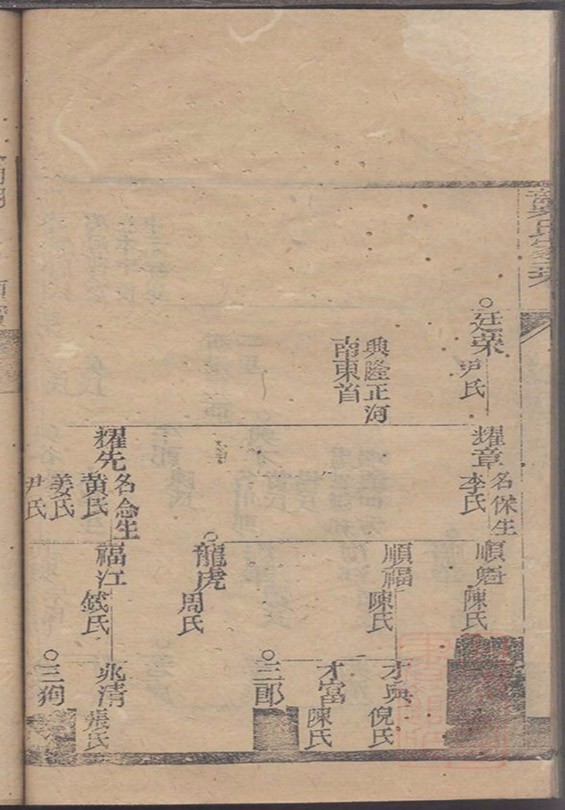 廷荣
尹氏
興隆正河
南東首
耀章
名保生
李氏
耀先
名念生
黄氏
姜氏
尹氏
順魁
陳氏
順福
陳氏
龍虎
周氏
福江
錢氏
才興
倪氏
才富
陳氏
三郎
兆清
張氏
三狗